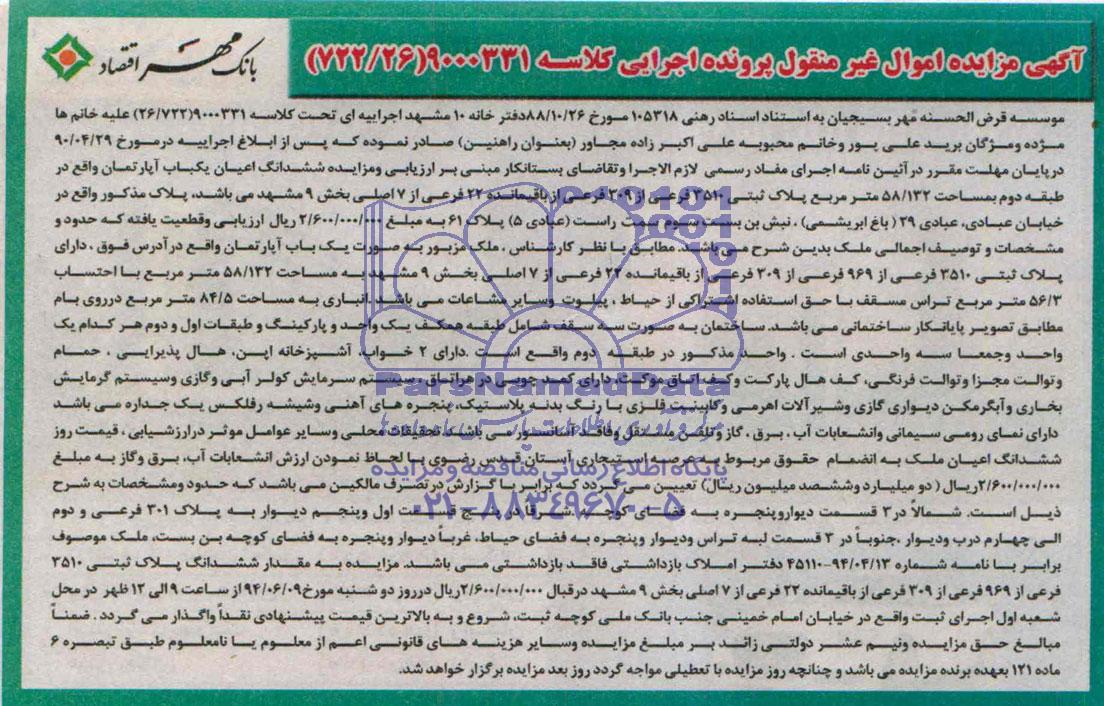 آگهی مزایده اموال غیر منقول پرونده اجرایی کلاسه ۹۰۰۰۳۳۱(۷۲۲/۲۶)
بانک مهر اقتصاد
موسسه قرض الحسنه مهر بسیجیان به استناد اسناد رهنی ۱۰۵۳۱۸ مورخ ۸۸/۱۰/۲۶دفتر خانه ۱۰ مشهد اجراییه ای تحت کلاسه ۹۰۰۰۳۳۱(۲۶/۷۲۲) علیه خانم ها
مژده ومژگان برید علی پور وخانم محبوبه علی اکبر زاده مجاور (بعنوان راهنین) صادر نموده که پس از ابلاغ اجراییه درمورخ ۹۰/۰۴/۲۹
درپایان مهلت مقرر در آئین نامه اجرای مفاد رسمی لازم الاجرا وتقاضای بستانکار مبنی بر ارزیابی ومزایده ششدانگ اعیان یکباب آپارتمان واقع در
طبقه دوم بمساحت ۵۸/۱۳۲ متر مربع پلاک ثبتی ۳۵۱۰ فرعی از ۳۰۹ فرعی از باقیمانده ۲۲ فرعی از ۷ اصلی بخش ۹ مشهد می باشد، پلاک مذکور واقع در
خیابان عبادی، عبادی ۲۹ (باغ ابریشمی) ، نبش بن بست سوم سمت راست (عبادی ۵) پلاک ۶۱ به مبلغ ۲/۶۰۰/۰۰۰/۰۰۰ ریال ارزیابی وقطعیت یافته که حدود و
مشخصات و توصیف اجمالی ملک بدین شرح می باشد. مطابق با نظر کارشناس ، ملک مزبور به صورت یک باب آپارتمان واقع در آدرس فوق ، دارای
پلاک ثبتی ۳۵۱۰ فرعی از ۹۶۹ فرعی از ۳۰۹ فرعی از باقیمانده ۲۲ فرعی از ۷ اصلی بخش ۹ مشهد به مساحت ۵۸/۱۳۲ متر مربع با احتساب
۵۶/۳ متر مربع تراس مسقف با حق استفاده اشتراکی از حیاط ، پیلوت وسایر مشاعات می باشد .انباری به مساحت ۸۴/۵ متر مربع درروی بام
مطابق تصویر پایانکار ساختمانی می باشد. ساختمان به صورت سه سقف شامل طبقه همکف یک واحد و پارکینگ و طبقات اول و دوم هر کدام یک
واحد وجمعا سه واحدی است . واحد مذکور در طبقه دوم واقع است .دارای ۲ خواب، آشپزخانه اپن، هال پذیرایی ، حمام
وتوالت مجزا وتوالت فرنگی، کف هال پارکت وکف اتاق موکت، دارای کمد چوبی در هراتاق ،سیستم سرمایش کولر آبی وگازی وسیستم گرمایش
بخاری وآبگرمکن دیواری گازی وشیر آلات اهرمی وکابینت فلزی با رنگ بدنه پلاستیک، پنجره های آهنی وشیشه رفلکس یک جداره می باشد
دارای نمای رومی سیمانی وانشعابات آب، برق ، گاز وتلفن مستقل وفاقد آسانسور می باشد.با تحقیقات محلی وسایر عوامل موثر درارزشیابی ، قیمت روز
ششدانگ اعیان ملک به انضمام حقوق مربوط به عرصه استیجاری آستان قدس رضوی با لحاظ نمودن ارزش انشعابات آب، برق وگاز به مبلغ
۲/۶۰۰/۰۰۰/۰۰۰ریال ( دو میلیارد وششصد میلیون ریال) تعیین می گردد که برابر با گزارش در تصرف مالکین می باشد که حدود ومشخصات به شرح
ذیل است. شمالاً در ۳ قسمت دیواروپنجره به فضای کوچه، شرقا در پنج قسمت اول وپنجم دیوار به پلاک ۳۰۱ فرعی و دوم
الی چهارم درب ودیوار ،جنوباً در ۳ قسمت لبه تراس ودیوار وپنجره به فضای حیاط، غرباً دیوار وپنجره به فضای کوچه بن بست، ملک موصوف
برابر با نامه شماره ۹۴/۰۴/۱۳-۴۵۱۱۰ دفتر املاک بازداشتی فاقد بازداشتی می باشد. مزایده به مقدار ششدانگ پلاک ثبتی ۳۵۱۰
فرعی از ۹۶۹ فرعی از ۳۰۹ فرعی از باقیمانده ۲۲ فرعی از ۷ اصلی بخش ۹ مشهد درقبال ۲/۶۰۰/۰۰۰/۰۰۰ریال درروز دو شنبه مورخ۹۴/۰۶/۰۹ از ساعت ۹ الی ۱۲ ظهر در محل
شعبه اول اجرای ثبت واقع در خیابان امام خمینی جنب بانک ملی کوچه ثبت، شروع و به بالاترین قیمت پیشنهادی نقداً واگذار می گردد . ضمناً
مبالغ حق مزایده ونیم عشر دولتی زائد بر مبلغ مزایده وسایر هزینه های قانونی اعم از معلوم یا نامعلوم طبق تبصره ۶
ماده ۱۲۱ بعهده برنده مزایده می باشد و چنانچه روز مزایده با تعطیلی مواجه گردد روز بعد مزایده برگزار خواهد شد.
ParsNamadData
پایگاه اطلاع رسانی مناقصه و مزایده
۰۲۱-۸۸۳۴۹۶۷۰-۵